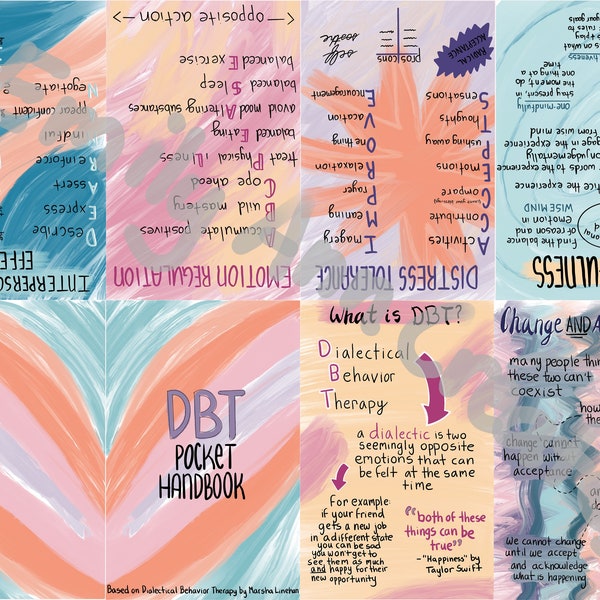 INTERPERSO
EFFE
Describe
Express
Assert
Reinforce
Mindful
Appear confident
Negotiate
EMOTION REGULATION
Accumulate positives
Build mastery
Cope ahead
treat Physical iLlness
balanced Eating
avoid mood Altering substances
balanced Sleep
balanced Exercise
<- opposite action ->
DISTRESS TOLERANCE
Activities
Contribute
Compare
(count your blessings)
Emotions
Pushing away
Thoughts
Sensations
Imagery
Meaning
Prayer
Relaxation
One thing
Vacation
Encouragement
RADICAL
ACCEPTANCE
pros|cons
self
soothe
FULNESS
Find the balance
of reason and
emotion in
WISE MIND
the experience
words to the experience
engage in the experience
from wise mind
one mindfully
stay present, in
the moment, do
one thing at a
time
on what
rules to
play
your goals
DBT
POCKET
HANDBOOK
Based on Dialectical Behavior Therapy by Marsha Linehan
What is DBT?
Dialectical
Behavior
Therapy
a dialectic is two
seemingly opposite
emotions that can
be felt at the same
time
For example:
if your friend
gets a new job
in a different state
you can be sad
you won't get to
see them as much
and happy for their
new opportunity
"both of these
things can be
true"
-"Happiness" by
Taylor Swift
Change AND A
many people thin
these two can't
coexist
how
the
change cannot
happen without
acceptance
and
do
We cannot change
until we accept
and acknowledge
what is happening